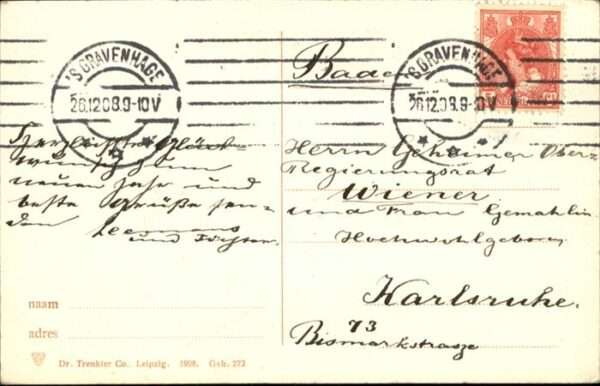 'S GRAVENHAGE
26.12.08.9-10V
'S GRAVENHAGE
26.12.08.9-10V
Baden
Herzlichsten Glück-
wunsch zum
neuen Jahr und
beste Grüße sen-
den
und
Herrn Geheimer Ober-
Regierungsrat
Wiener
und Frau Gemahlin
Hochwohlgeboren
Karlsruhe.
73
Bismarkstrasse
naam
adres
Dr. Trenkler Co., Leipzig. 1908. Gvh. 272